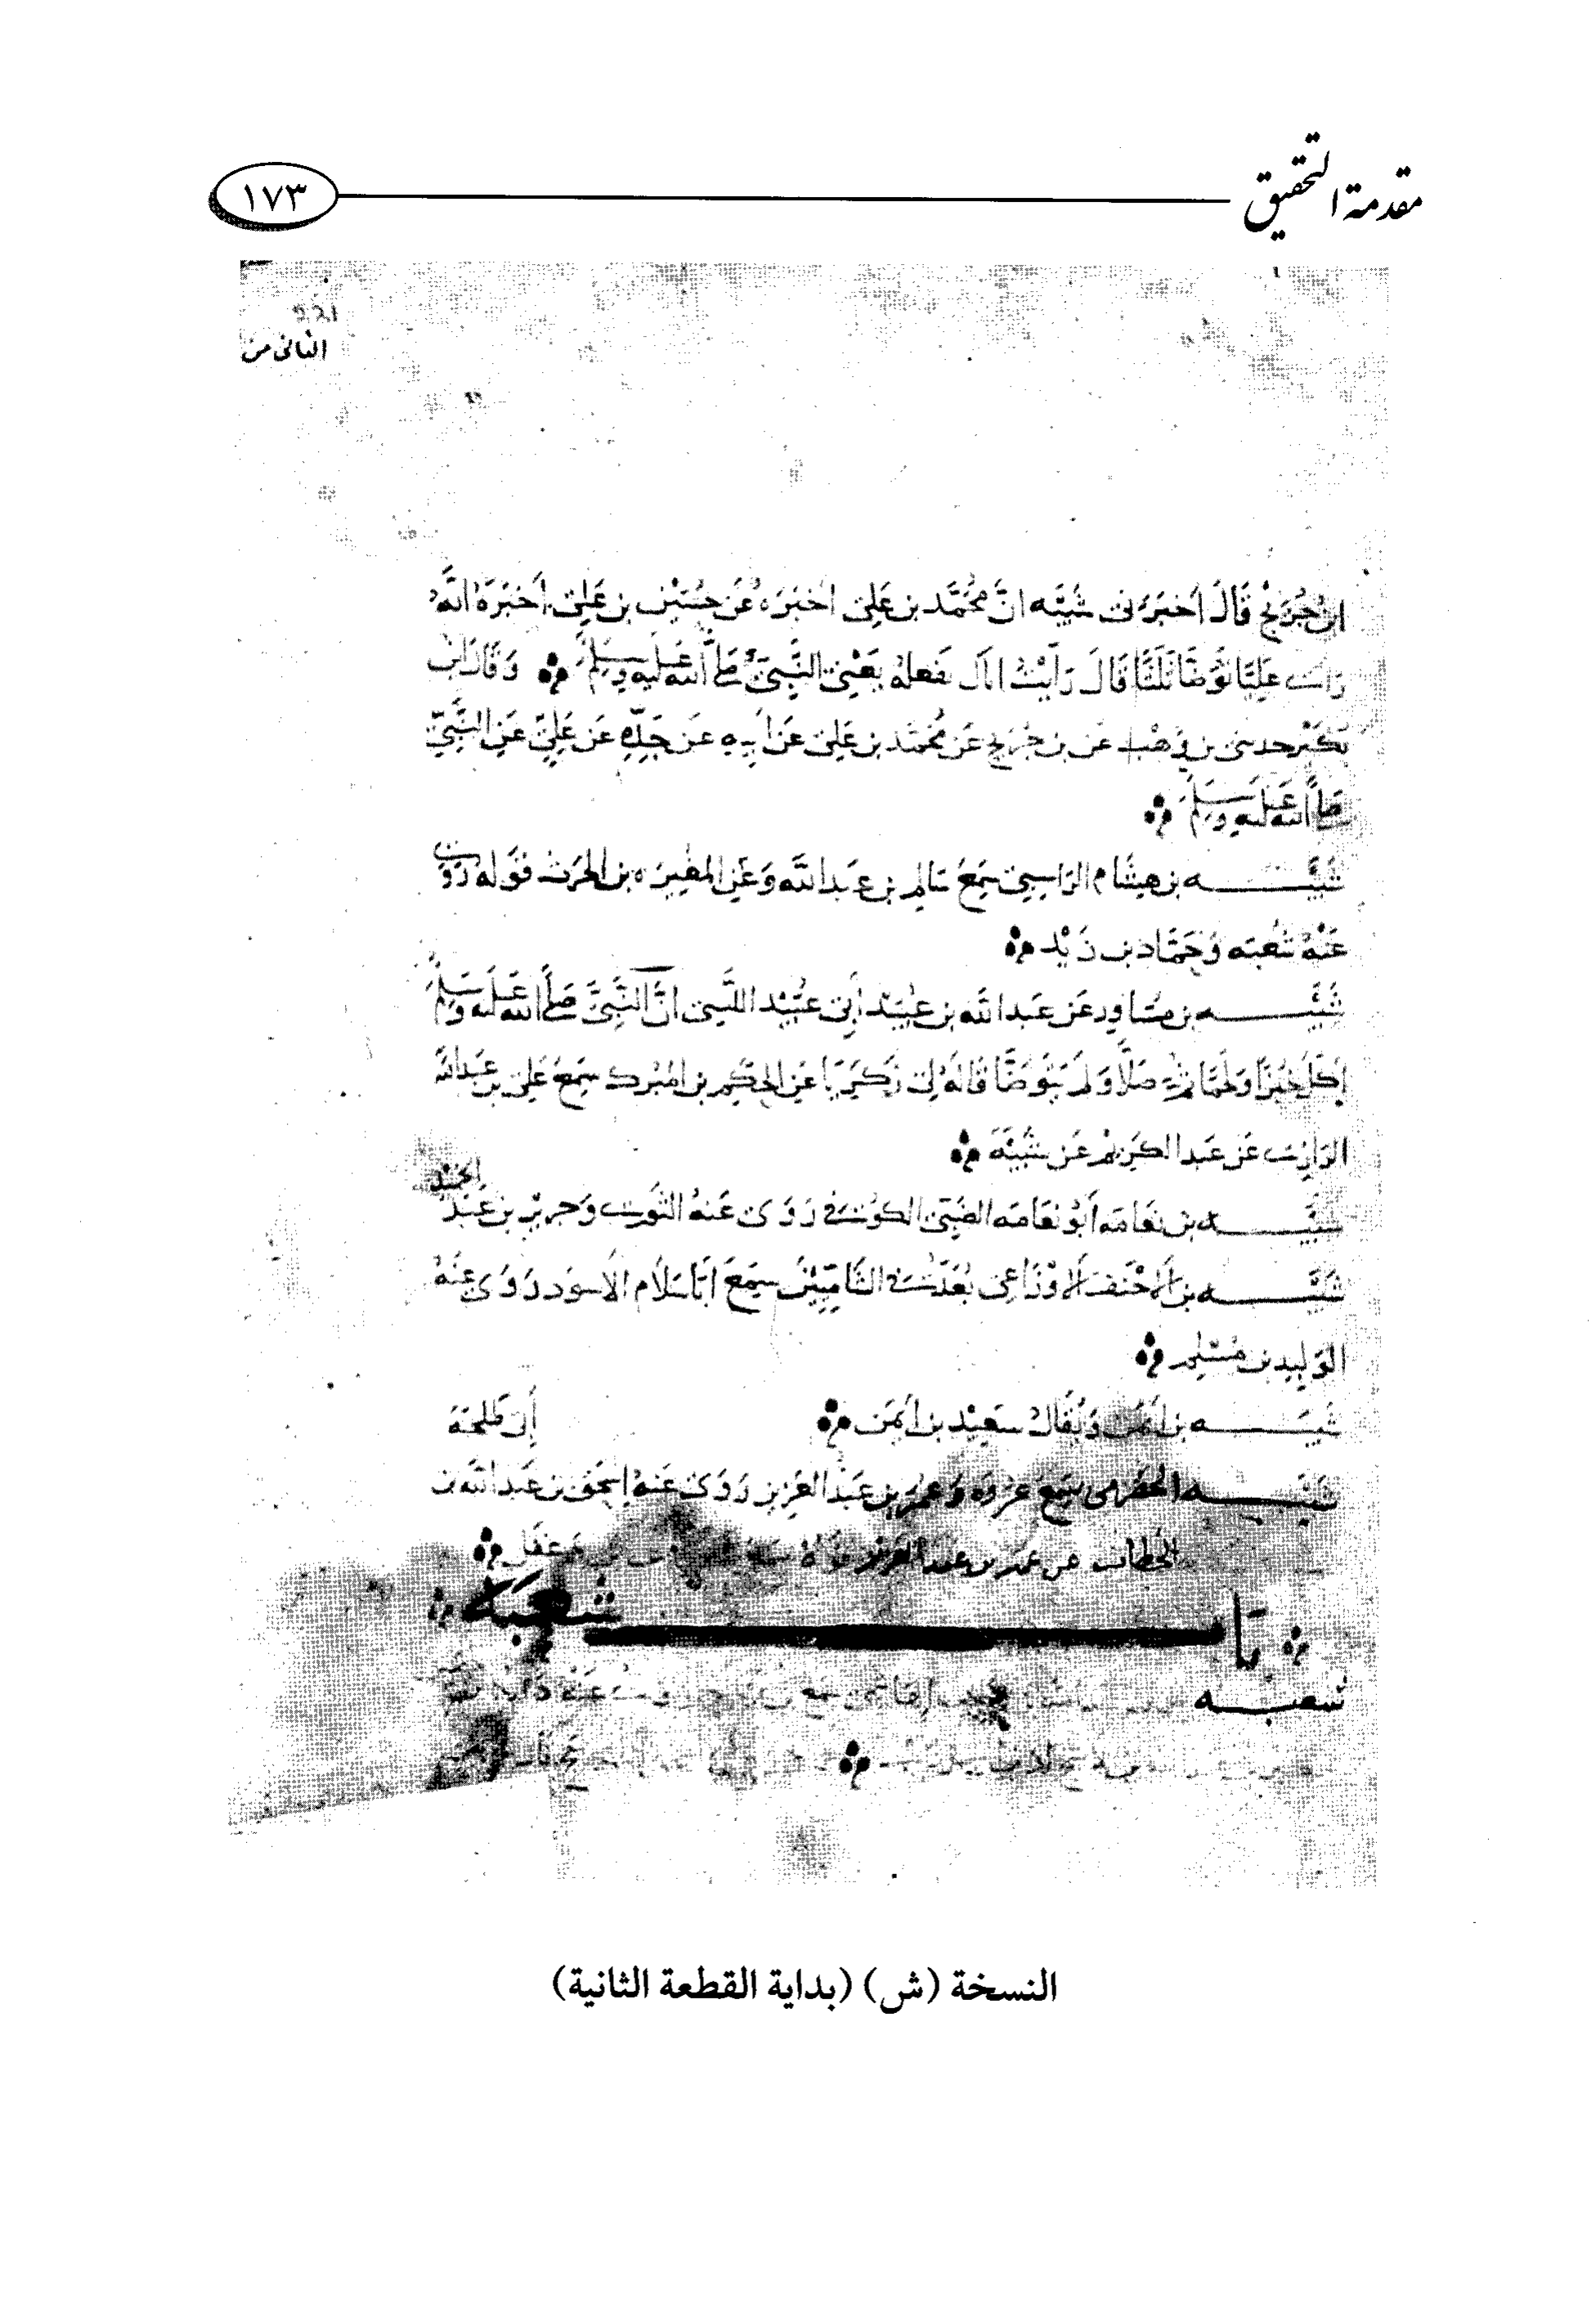 مقدمة التحقيق
١٧٣
الثاني من
ابن جُرَيْج قَالَ أخبَرَني شَيْبَه انَّ مُحَمَّد بن عَلِيّ أخبَرَهُ عَن حُسَيْن بن عَلِيّ أخبَرَهُ انَّهُ
رات عَلِيًّا تَوَضَّا ثَلَثًا قَالَ رَأيْتُ اباك يَفعَلهُ يَعْنِي النَّبِيَّ صَلَّى اللهُ عَلَيْهِ وَسَلَّم وَقَالَ ابن
بُكَيْر حدثني بن وَهْب عَن بن جُرَيْج عَن مُحَمَّد بن عَلِيّ عَن أبِيهِ عَن جَدِّهِ عَن عَلِيّ عَنِ النَّبِيّ
صَلَّى اللهُ عَلَيْهِ وَسَلَّم
شَيْبَه بن هِشَام الرَاسِبِيّ سَمِعَ سَالِم بن عَبد الله وَعَنِ المُغِيرَه بن الحَرث قَوله رَوَى
عَنْهُ شُعبَه وَحَمَّاد بن زَيْد
شَيْبَه بن مُسَاوِر عَن عَبد الله بن عُبَيْد أبي عُبَيْد اللَّيثي انَّ النَّبِيَّ صَلَّى اللهُ عَلَيْهِ وَسَلَّم
اكَلَ خُبْزًا وَلَحمًا ثم صَلَّا وَلَم يَتَوَضَّا قَالَهُ لي زَكَرِيَّا عَنِ الحَكَم بن المُبرك سَمِعَ عَلِيّ بن عَبد الله
الرَازي عَن عَبد الكَرِيْم عَن شَيْبَة
شَيْبَه بن نَعَامَه أبُو نَعَامَه الضَبِّيّ الكوفي رَوَى عَنهُ الثَوري وَجرِير بن عَبْد الحَمِيْد
شَيْبَه بن الاحْنَف الاوْزَاعِي يُعَدُّ في الشَامِيِّيْن سَمِعَ ابَا سَلام الاسوَد رَوَى عَنْهُ
الوَلِيد بن مُسْلِم
شَيْبَه بن أيمَن وَيُقَالُ سَعِيْد بن أيمَن
شَيْبَه الحَضْرَمي سَمِعَ عُروَه وَعُمَر بن عَبْد العَزِيز رَوَى عَنهُ إسحَق بن عَبد الله بن
أبِي طَلحَة
بَاب شُعبَة
شعبه
النسخة (ش) (بداية القطعة الثانية)